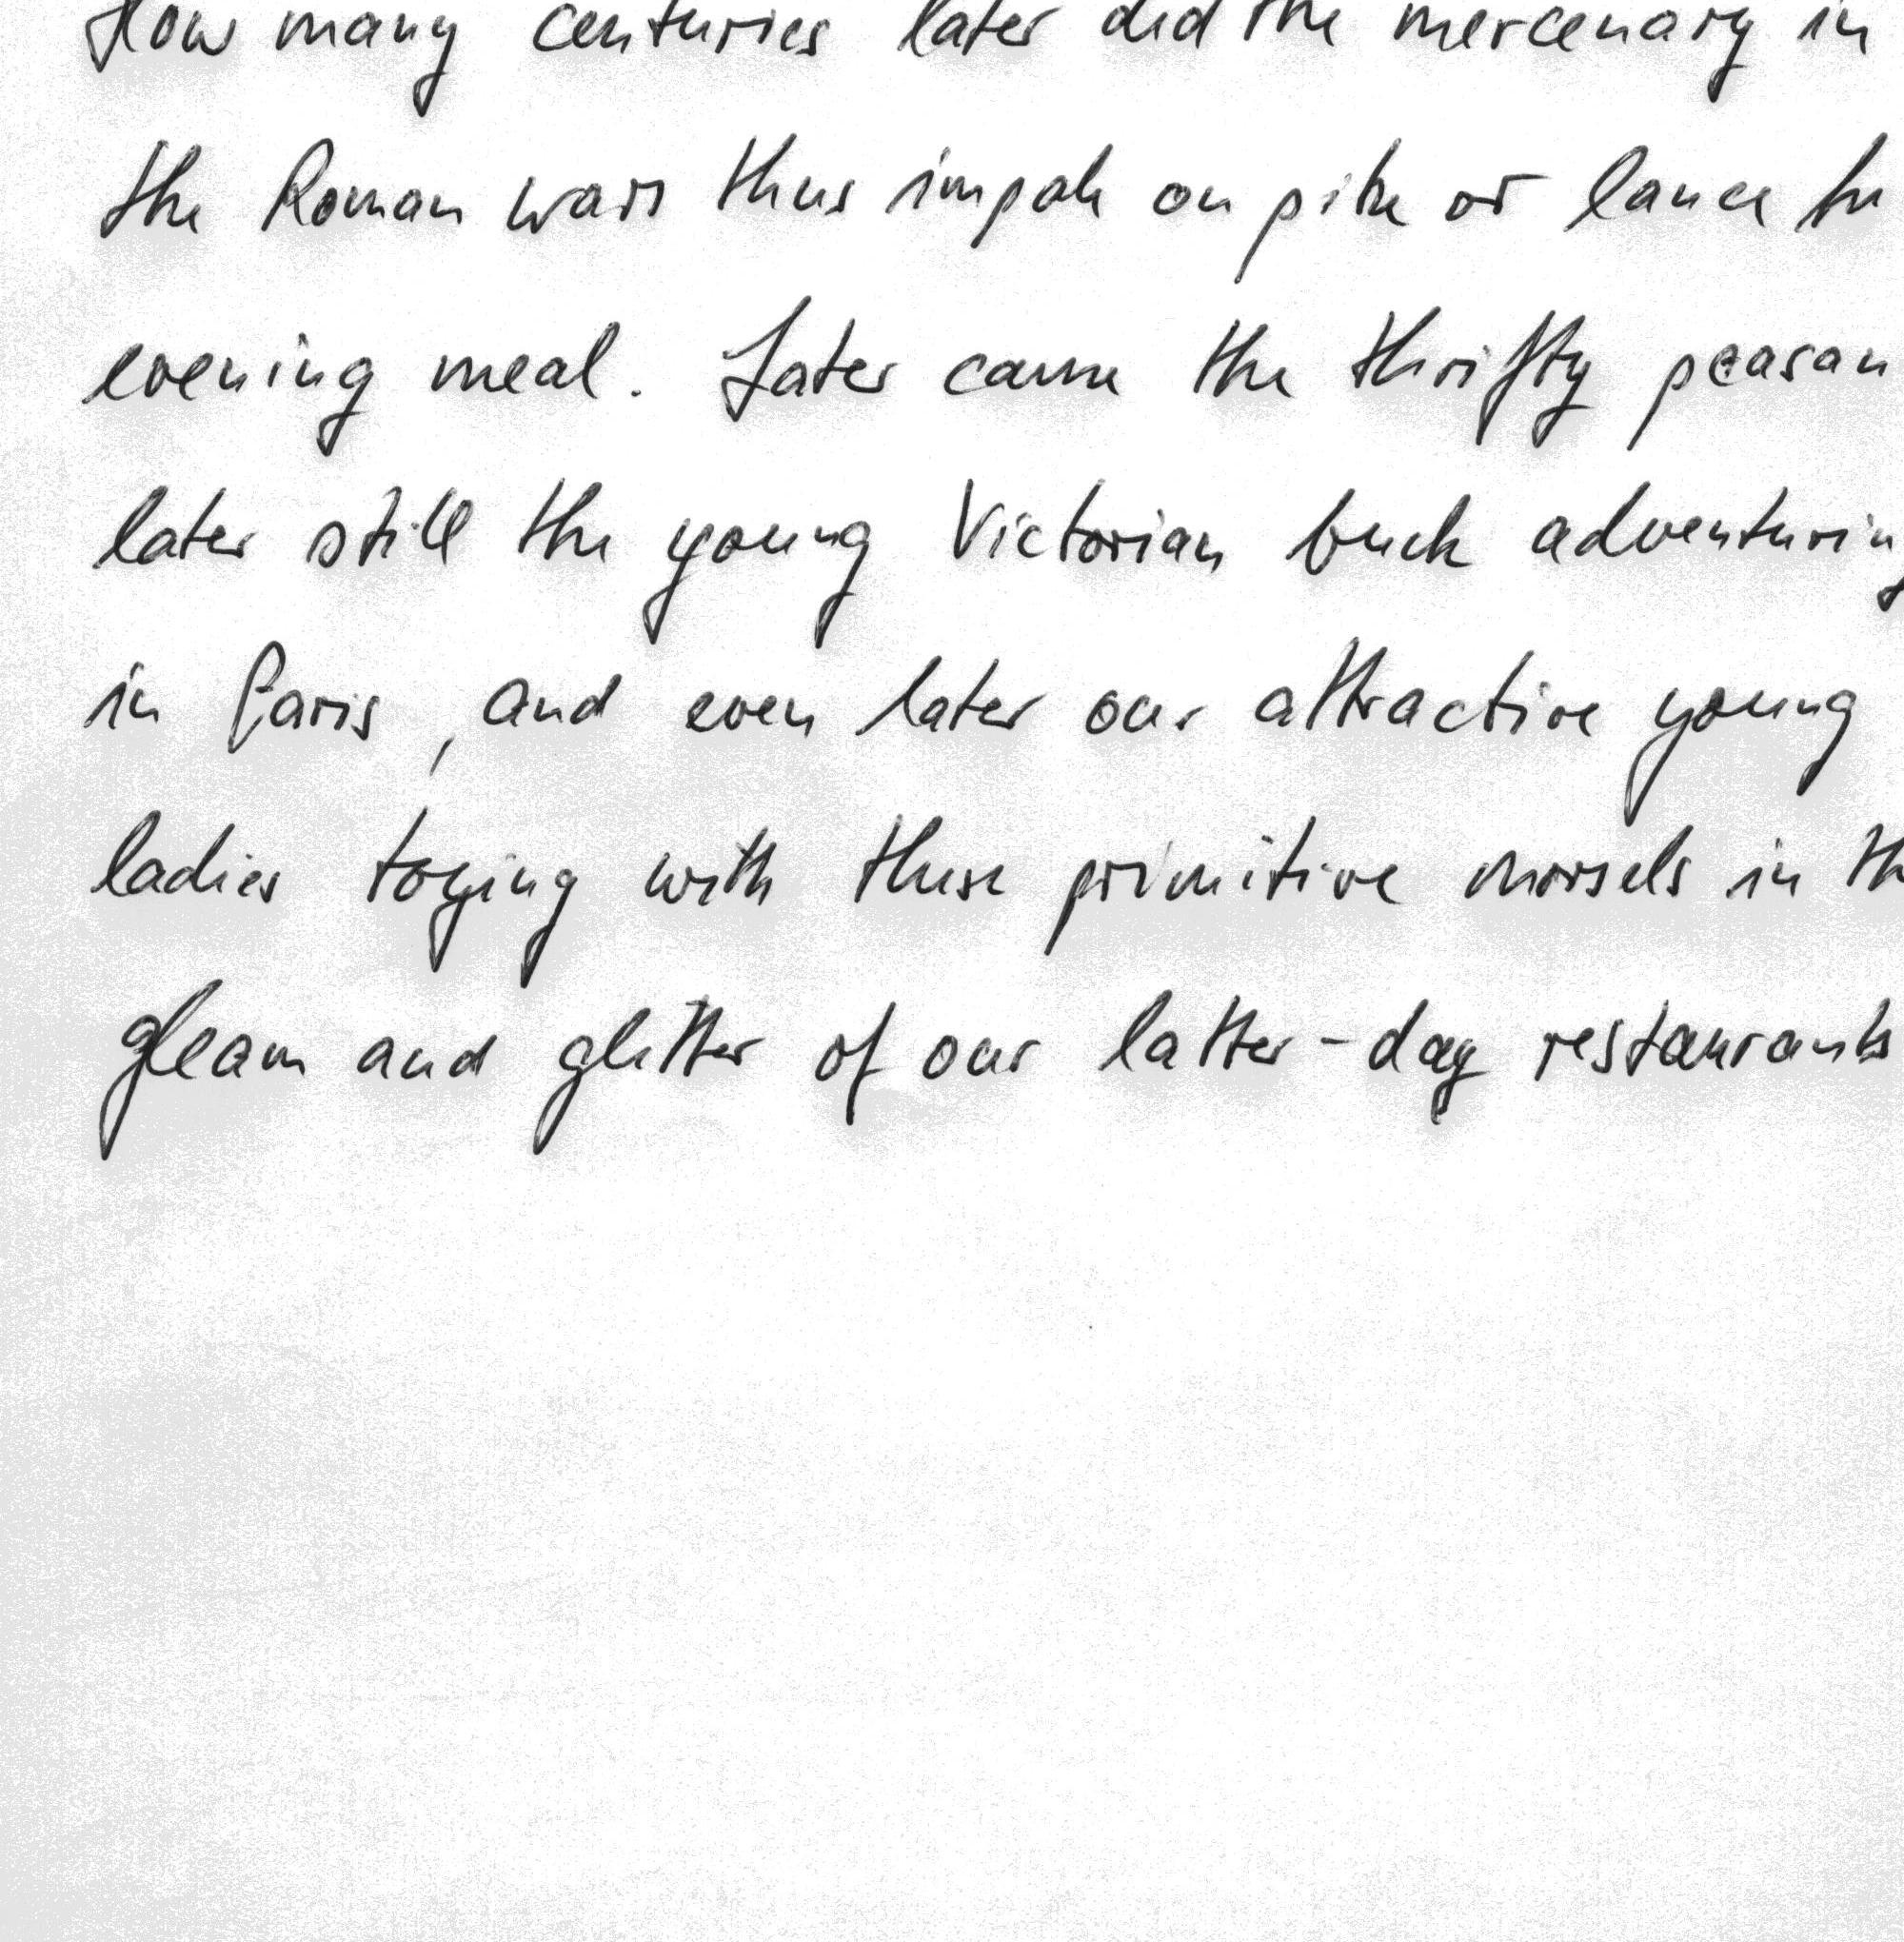 How many centuries later did the mercenary in
the Roman wars thus impale on pike or lance his
evening meal. Later came the thrifty peasan
later still the young Victorian buck adventuring
in Paris, and even later our attractive young
ladies toying with these primitive morsels in th
gleam and glitter of our latter-day restaurants